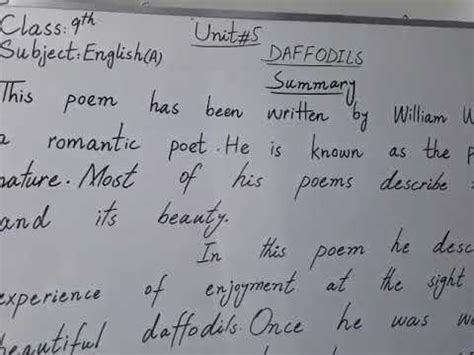 Class: 9th
Unit#5
Subject: English(A)
DAFFODILS
Summary
This poem has been written by William W
a romantic poet. He is known as the P
nature. Most of his poems describe
and its beauty.
In this poem he desc
experience of enjoyment at the sight
beautiful daffodils. Once he was w